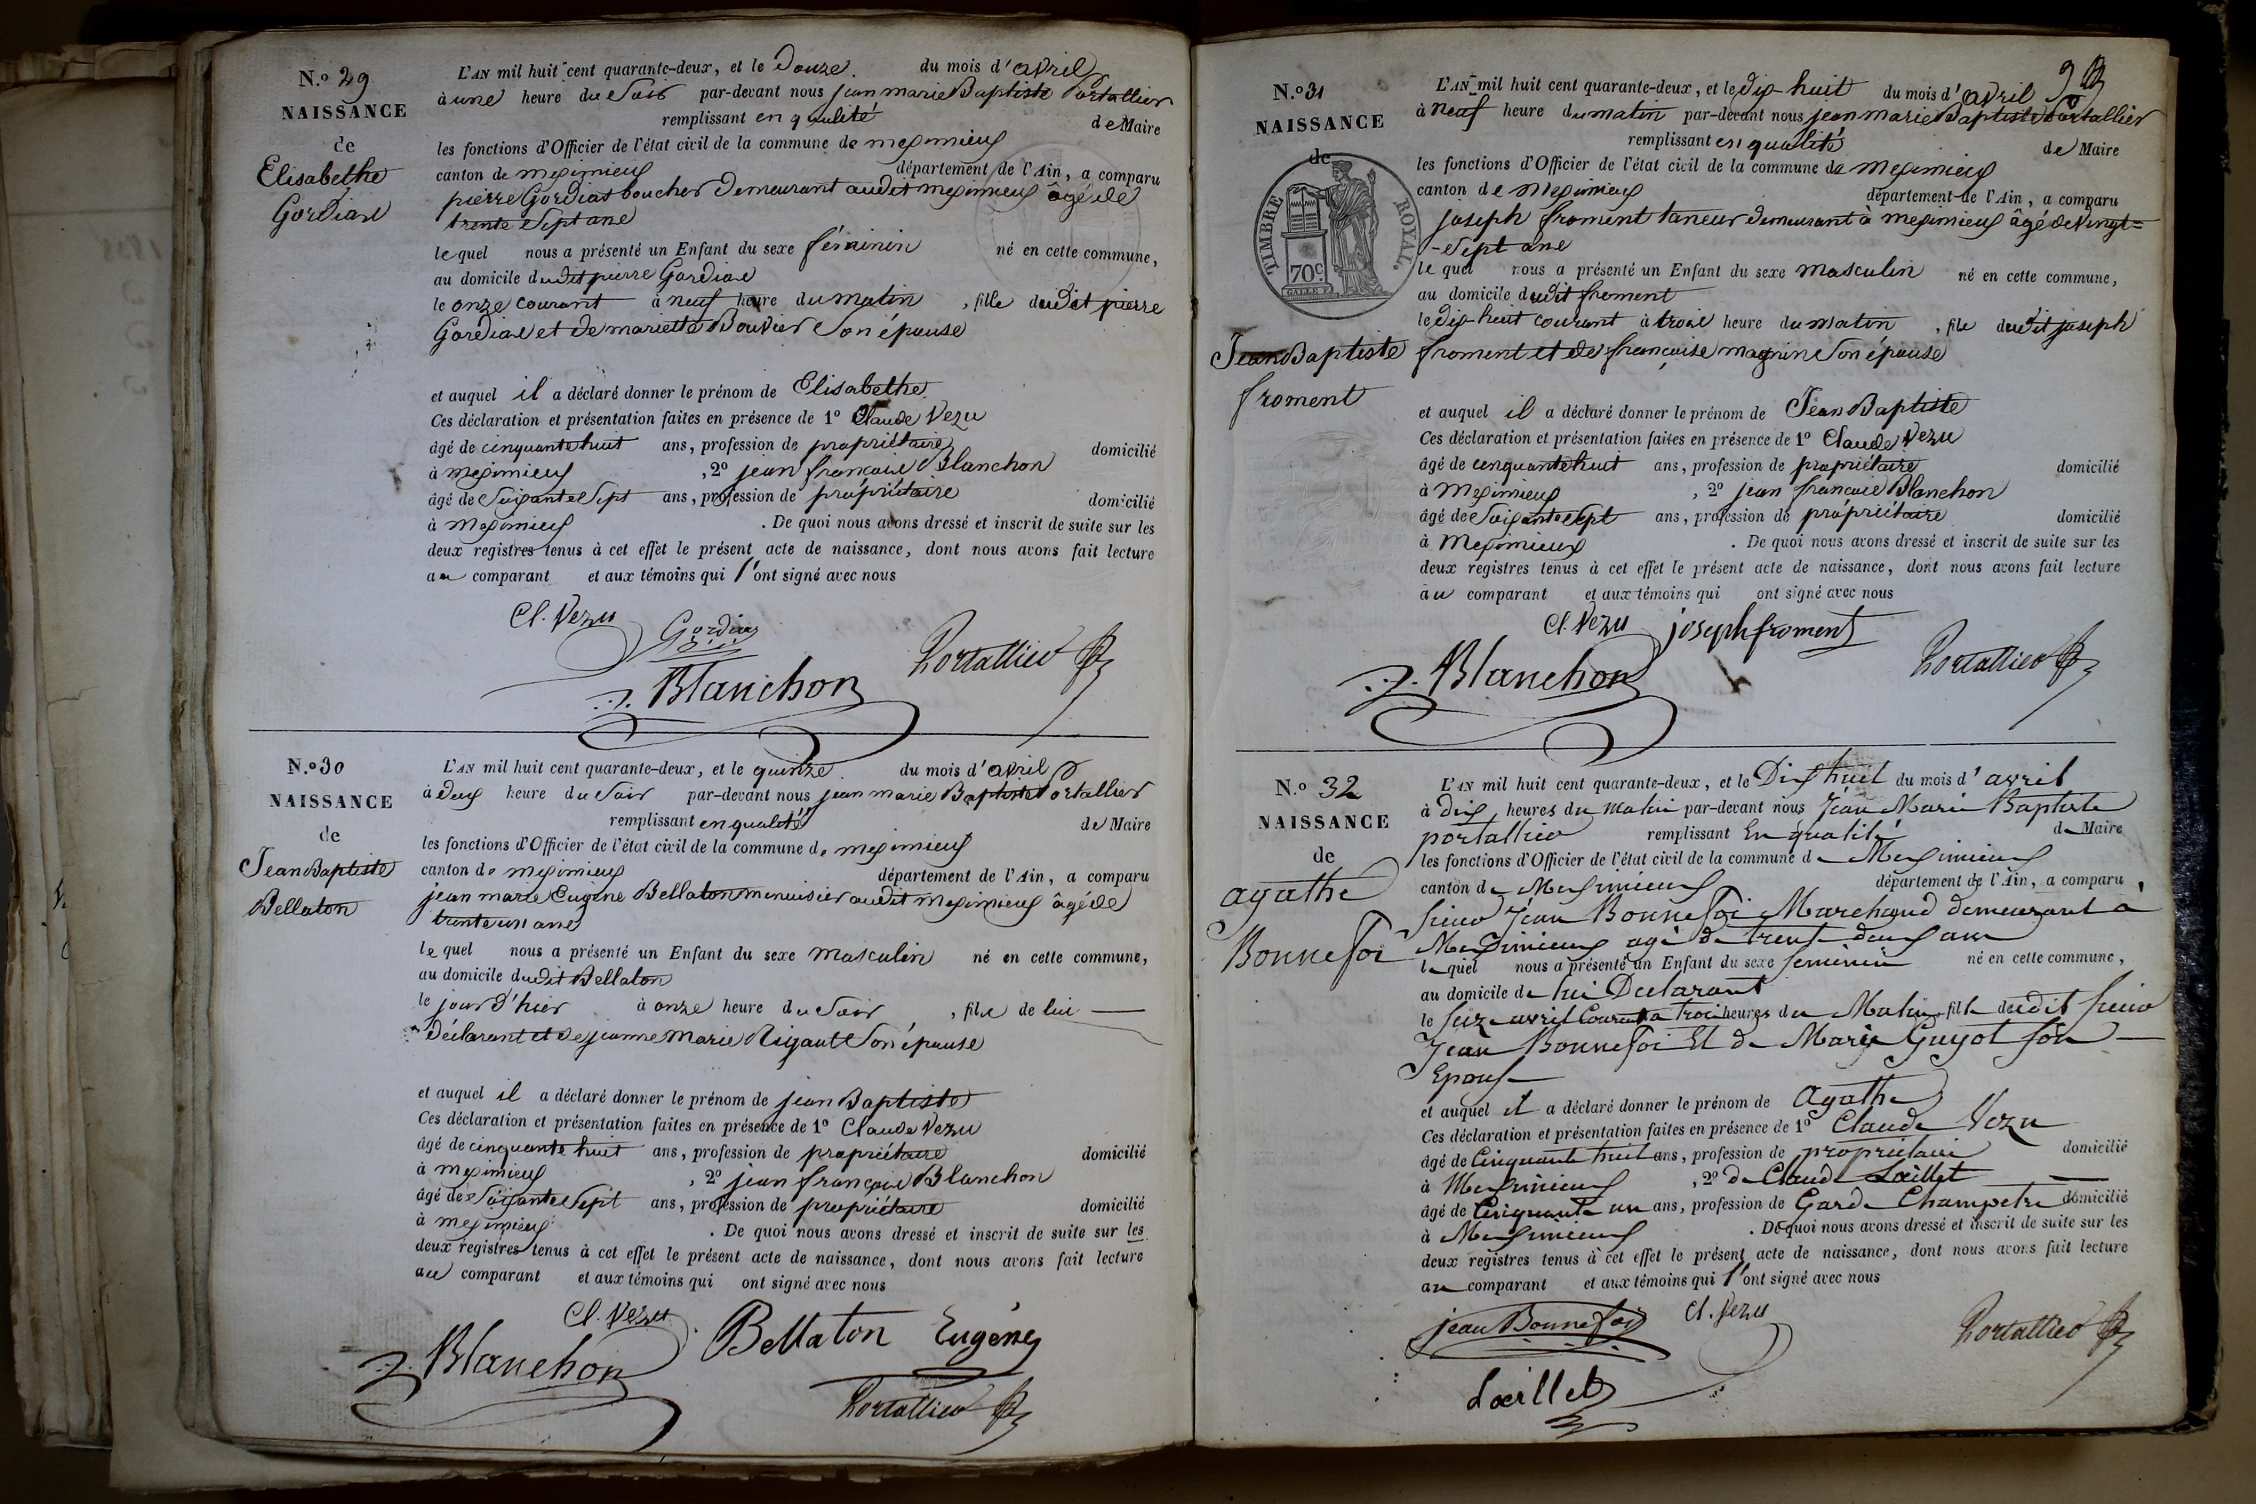 N.o 29
NAISSANCE
de
Elisabethe
Gordiat
L'AN mil huit cent quarante-deux, et le Douze du mois d'avril
à une heure du Soir par-devant nous jean marie Baptiste Portallier
remplissant en qualité de Maire
les fonctions d'Officier de l'état civil de la commune de meximieux
canton de meximieux département de l'Ain, a comparu
pierre Gordiat boucher Demeurant audit meximieux âgé de
trente Sept ans
lequel nous a présenté un Enfant du sexe féminin né en cette commune,
au domicile dudit pierre Gordiat
le onze courant à neuf heure du matin, fille dudit pierre
Gordiat et de mariette Bouvier Son épouse
et auquel il a déclaré donner le prénom de Elisabethe
Ces déclaration et présentation faites en présence de 1o Claude Vezu
âgé de cinquante huit ans, profession de propriétaire domicilié
à meximieux, 2o jean françois Blanchon
âgé de Soixante Sept ans, profession de propriétaire domicilié
à meximieux. De quoi nous avons dressé et inscrit de suite sur les
deux registres tenus à cet effet le présent acte de naissance, dont nous avons fait lecture
au comparant et aux témoins qui l'ont signé avec nous
Cl. Vezu
Gordiat
Blanchon
Portallier
N.o 30
NAISSANCE
de
Jean Baptiste
Bellaton
L'AN mil huit cent quarante-deux, et le quinze du mois d'avril
à deux heure du Soir par-devant nous jean marie Baptiste Portallier
remplissant en qualité de Maire
les fonctions d'Officier de l'état civil de la commune de meximieux
canton de meximieux département de l'Ain, a comparu
jean marie Eugène Bellaton menuisier audit meximieux âgé de
trente un ans
lequel nous a présenté un Enfant du sexe masculin né en cette commune,
au domicile dudit Bellaton
le jour d'hier à onze heure du Soir, fils de lui
Déclarant et de jeanne Marie Rigault Son épouse
et auquel il a déclaré donner le prénom de jean Baptiste
Ces déclaration et présentation faites en présence de 1o Claude Vezu
âgé de cinquante huit ans, profession de propriétaire domicilié
à meximieux, 2o jean françois Blanchon
âgé de Soixante Sept ans, profession de propriétaire domicilié
à meximieux. De quoi nous avons dressé et inscrit de suite sur les
deux registres tenus à cet effet le présent acte de naissance, dont nous avons fait lecture
au comparant et aux témoins qui ont signé avec nous
Cl. Vezu
Blanchon
Bellaton Eugène
Portallier
N.o 31
NAISSANCE
de
TIMBRE ROYAL.
70c.
Jean Baptiste
froment
L'AN mil huit cent quarante-deux, et le dix-huit du mois d'avril
à neuf heure du matin par-devant nous jean marie Baptiste Portallier
remplissant en qualité de Maire
les fonctions d'Officier de l'état civil de la commune de meximieux
canton de meximieux département de l'Ain, a comparu
joseph froment taneur demeurant à meximieux âgé de vingt=
-Sept ans
le quel nous a présenté un Enfant du sexe masculin né en cette commune,
au domicile dudit froment
le dix-huit courant à trois heure du matin, fils dudit joseph
froment et de françoise magnin Son épouse
et auquel il a déclaré donner le prénom de Jean Baptiste
Ces déclaration et présentation faites en présence de 1o Claude Vezu
âgé de cinquante huit ans, profession de propriétaire domicilié
à meximieux, 2o jean françois Blanchon
âgé de Soixante Sept ans, profession de propriétaire domicilié
à Meximieux. De quoi nous avons dressé et inscrit de suite sur les
deux registres tenus à cet effet le présent acte de naissance, dont nous avons fait lecture
au comparant et aux témoins qui ont signé avec nous
Cl. Vezu
joseph froment
Blanchon
Portallier
N.o 32
NAISSANCE
de
agathe
Bonnefoi
L'AN mil huit cent quarante-deux, et le Dix huit du mois d'avril
à dix heures du Matin par-devant nous Jean Marie Baptiste
portallier remplissant En qualité de Maire
les fonctions d'Officier de l'état civil de la commune de Meximieux
canton de Meximieux département de l'Ain, a comparu
Sieur Jean Bonnefoi Marchand demeurant à
Meximieux agé de trente deux ans
le quel nous a présenté un Enfant du sexe feminin né en cette commune,
au domicile de lui Declarant
le Seize avril Courant à trois heures du Matin, fille dudit Sieur
Jean Bonnefoi Et de Marie Guyot Son
Epouse
et auquel il a déclaré donner le prénom de Agathe
Ces déclaration et présentation faites en présence de 1o Claude Vezu
âgé de Cinquante huit ans, profession de propriétaire domicilié
à Meximieux, 2o de Claude Loeillet
âgé de Cinquante un ans, profession de Garde Champetre domicilié
à Meximieux. De quoi nous avons dressé et inscrit de suite sur les
deux registres tenus à cet effet le présent acte de naissance, dont nous avons fait lecture
au comparant et aux témoins qui l'ont signé avec nous
jean Bonnefoi
Cl. Vezu
Portallier
Loeillet